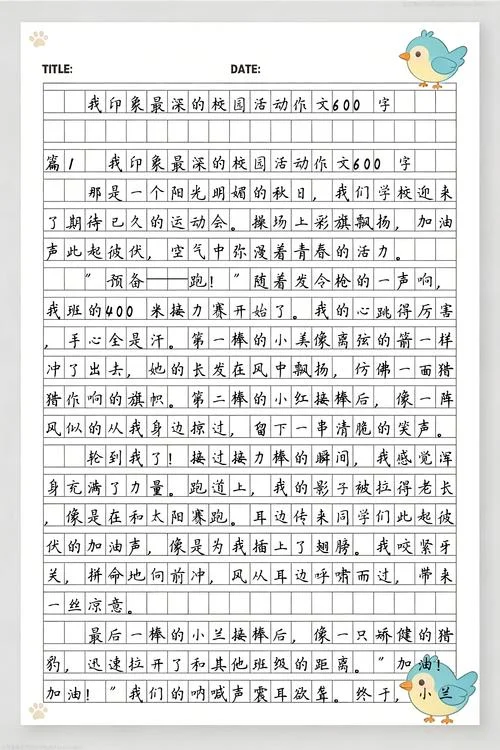 TITLE: DATE:
我印象最深的校园活动作文600 字
篇1 我印象最深的校园活动作文600 字
那是一个阳光明媚的秋日，我们学校迎来
了期待已久的运动会。操场上彩旗飘扬，加油
声此起彼伏，空气中弥漫着青春的活力。
"预备——跑！"随着发令枪的一声响，
我班的400 米接力赛开始了。我的心跳得厉害
，手心全是汗。第一棒的小美像离弦的箭一样
冲了出去，她的长发在风中飘扬，仿佛一面猎
猎作响的旗帜。第二棒的小红接棒后，像一阵
风似的从我身边掠过，留下一串清脆的笑声。
轮到我了！接过接力棒的瞬间，我感觉浑
身充满了力量。跑道上，我的影子被拉得老长
，像是在和太阳赛跑。耳边传来同学们此起彼
伏的加油声，像是为我插上了翅膀。我咬紧牙
关，拼命地向前冲，风从耳边呼啸而过，带来
一丝凉意。
最后一棒的小兰接棒后，像一只矫健的猎
豹，迅速拉开了和其他班级的距离。"加油！
加油！"我们的呐喊声震耳欲聋。终于，小兰